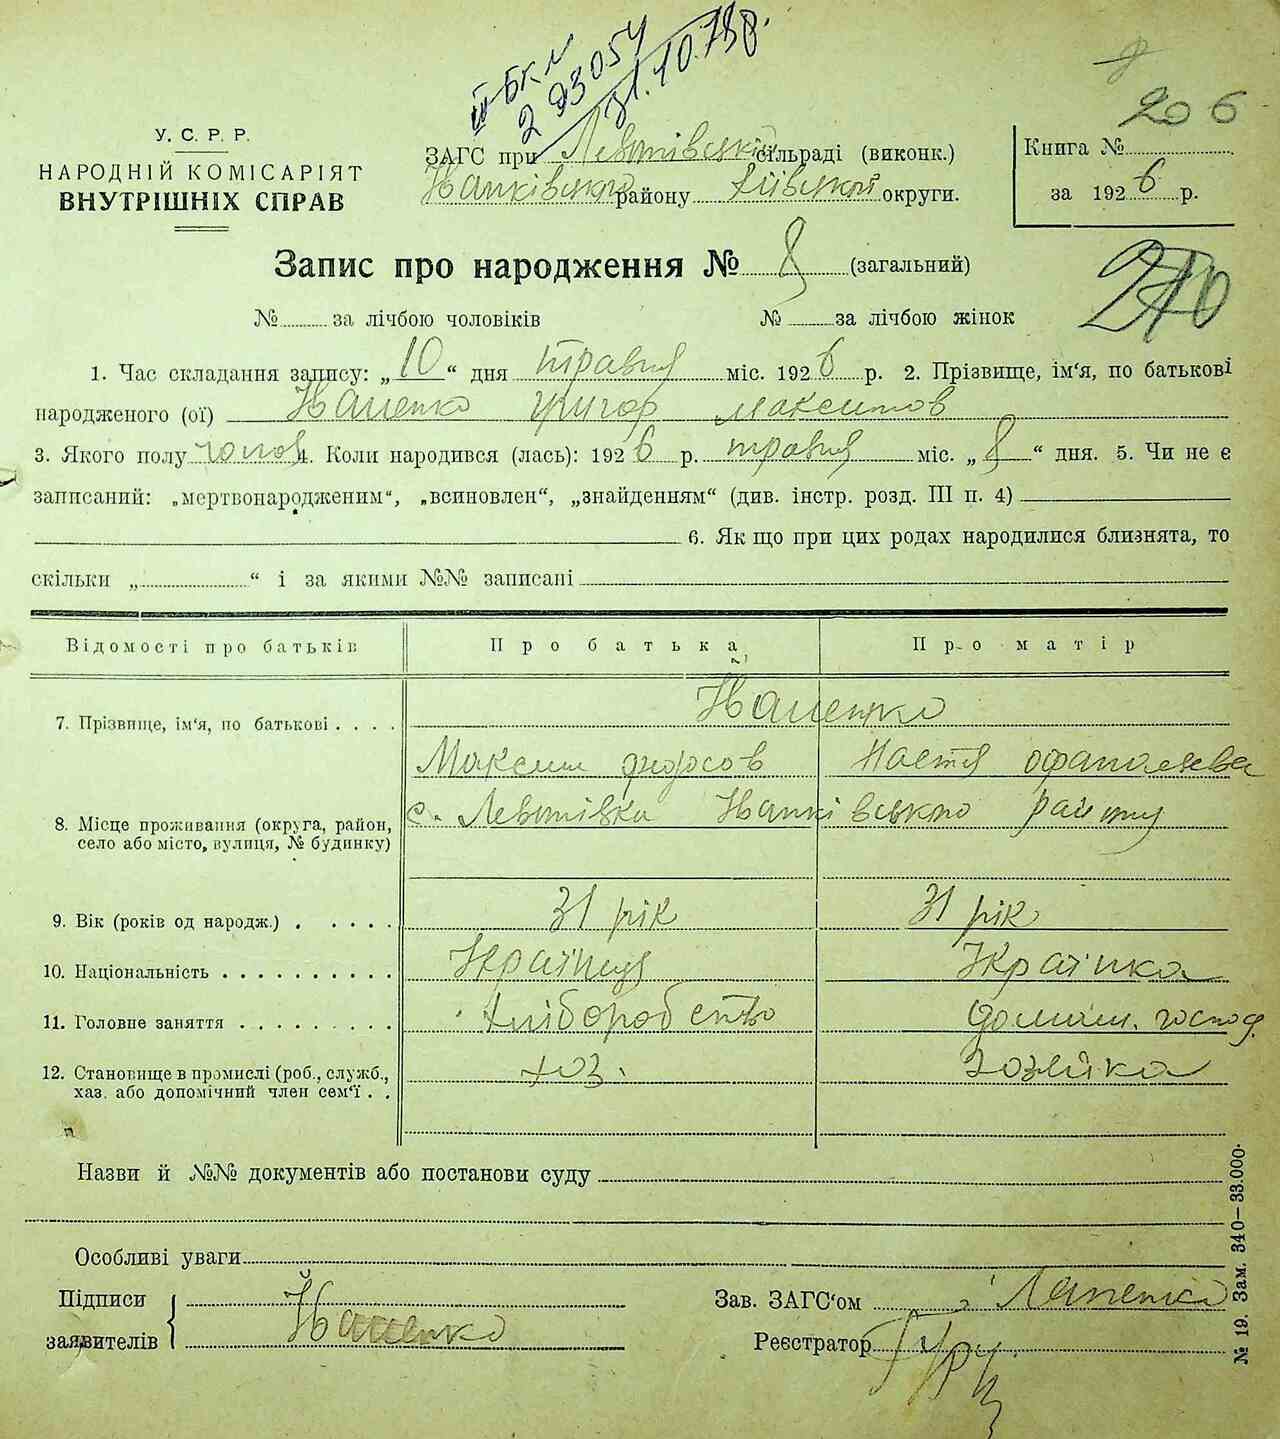 206
У. С. Р. Р.
НАРОДНІЙ КОМІСАРІЯТ
ВНУТРІШНІХ СПРАВ
ЗАГС при сільраді (виконк.)
району Київської округи.
Книга №
за 1926 р.
Запис про народження № 8 (загальний)
№ за лічбою чоловіків № за лічбою жінок
210
1. Час складання запису: „10“ дня травня міс. 1926 р. 2. Прізвище, ім‘я, по батькові
народженого (ої) Іваненко Григор Максимов
3. Якого полу чолов 4. Коли народився (лась): 1926 р. травня міс. „8“ дня. 5. Чи не є
записаний: „мертвонародженим“, „всиновлен“, „знайденням“ (див. інстр. розд. III п. 4)
6. Як що при цих родах народилися близнята, то
скільки „ “ і за якими №№ записані
Відомості про батьків Про батька Про матір
7. Прізвище, ім‘я, по батькові Іваненко
Максим Настя
8. Місце проживання (округа, район,
село або місто, вулиця, № будинку)
с. району
9. Вік (років од народж.) 31 рік 31 рік
10. Національність Українця Українка
11. Головне заняття Хліборобство домаш. господ.
12. Становище в промислі (роб., служб.,
хаз. або допомічний член сем‘ї хоз. хозейка
Назви й №№ документів або постанови суду
Особливі уваги
Підписи
заявителів Іваненко
Зав. ЗАГС‘ом
Реєстратор
№ 19. Зам. 340—33.000.